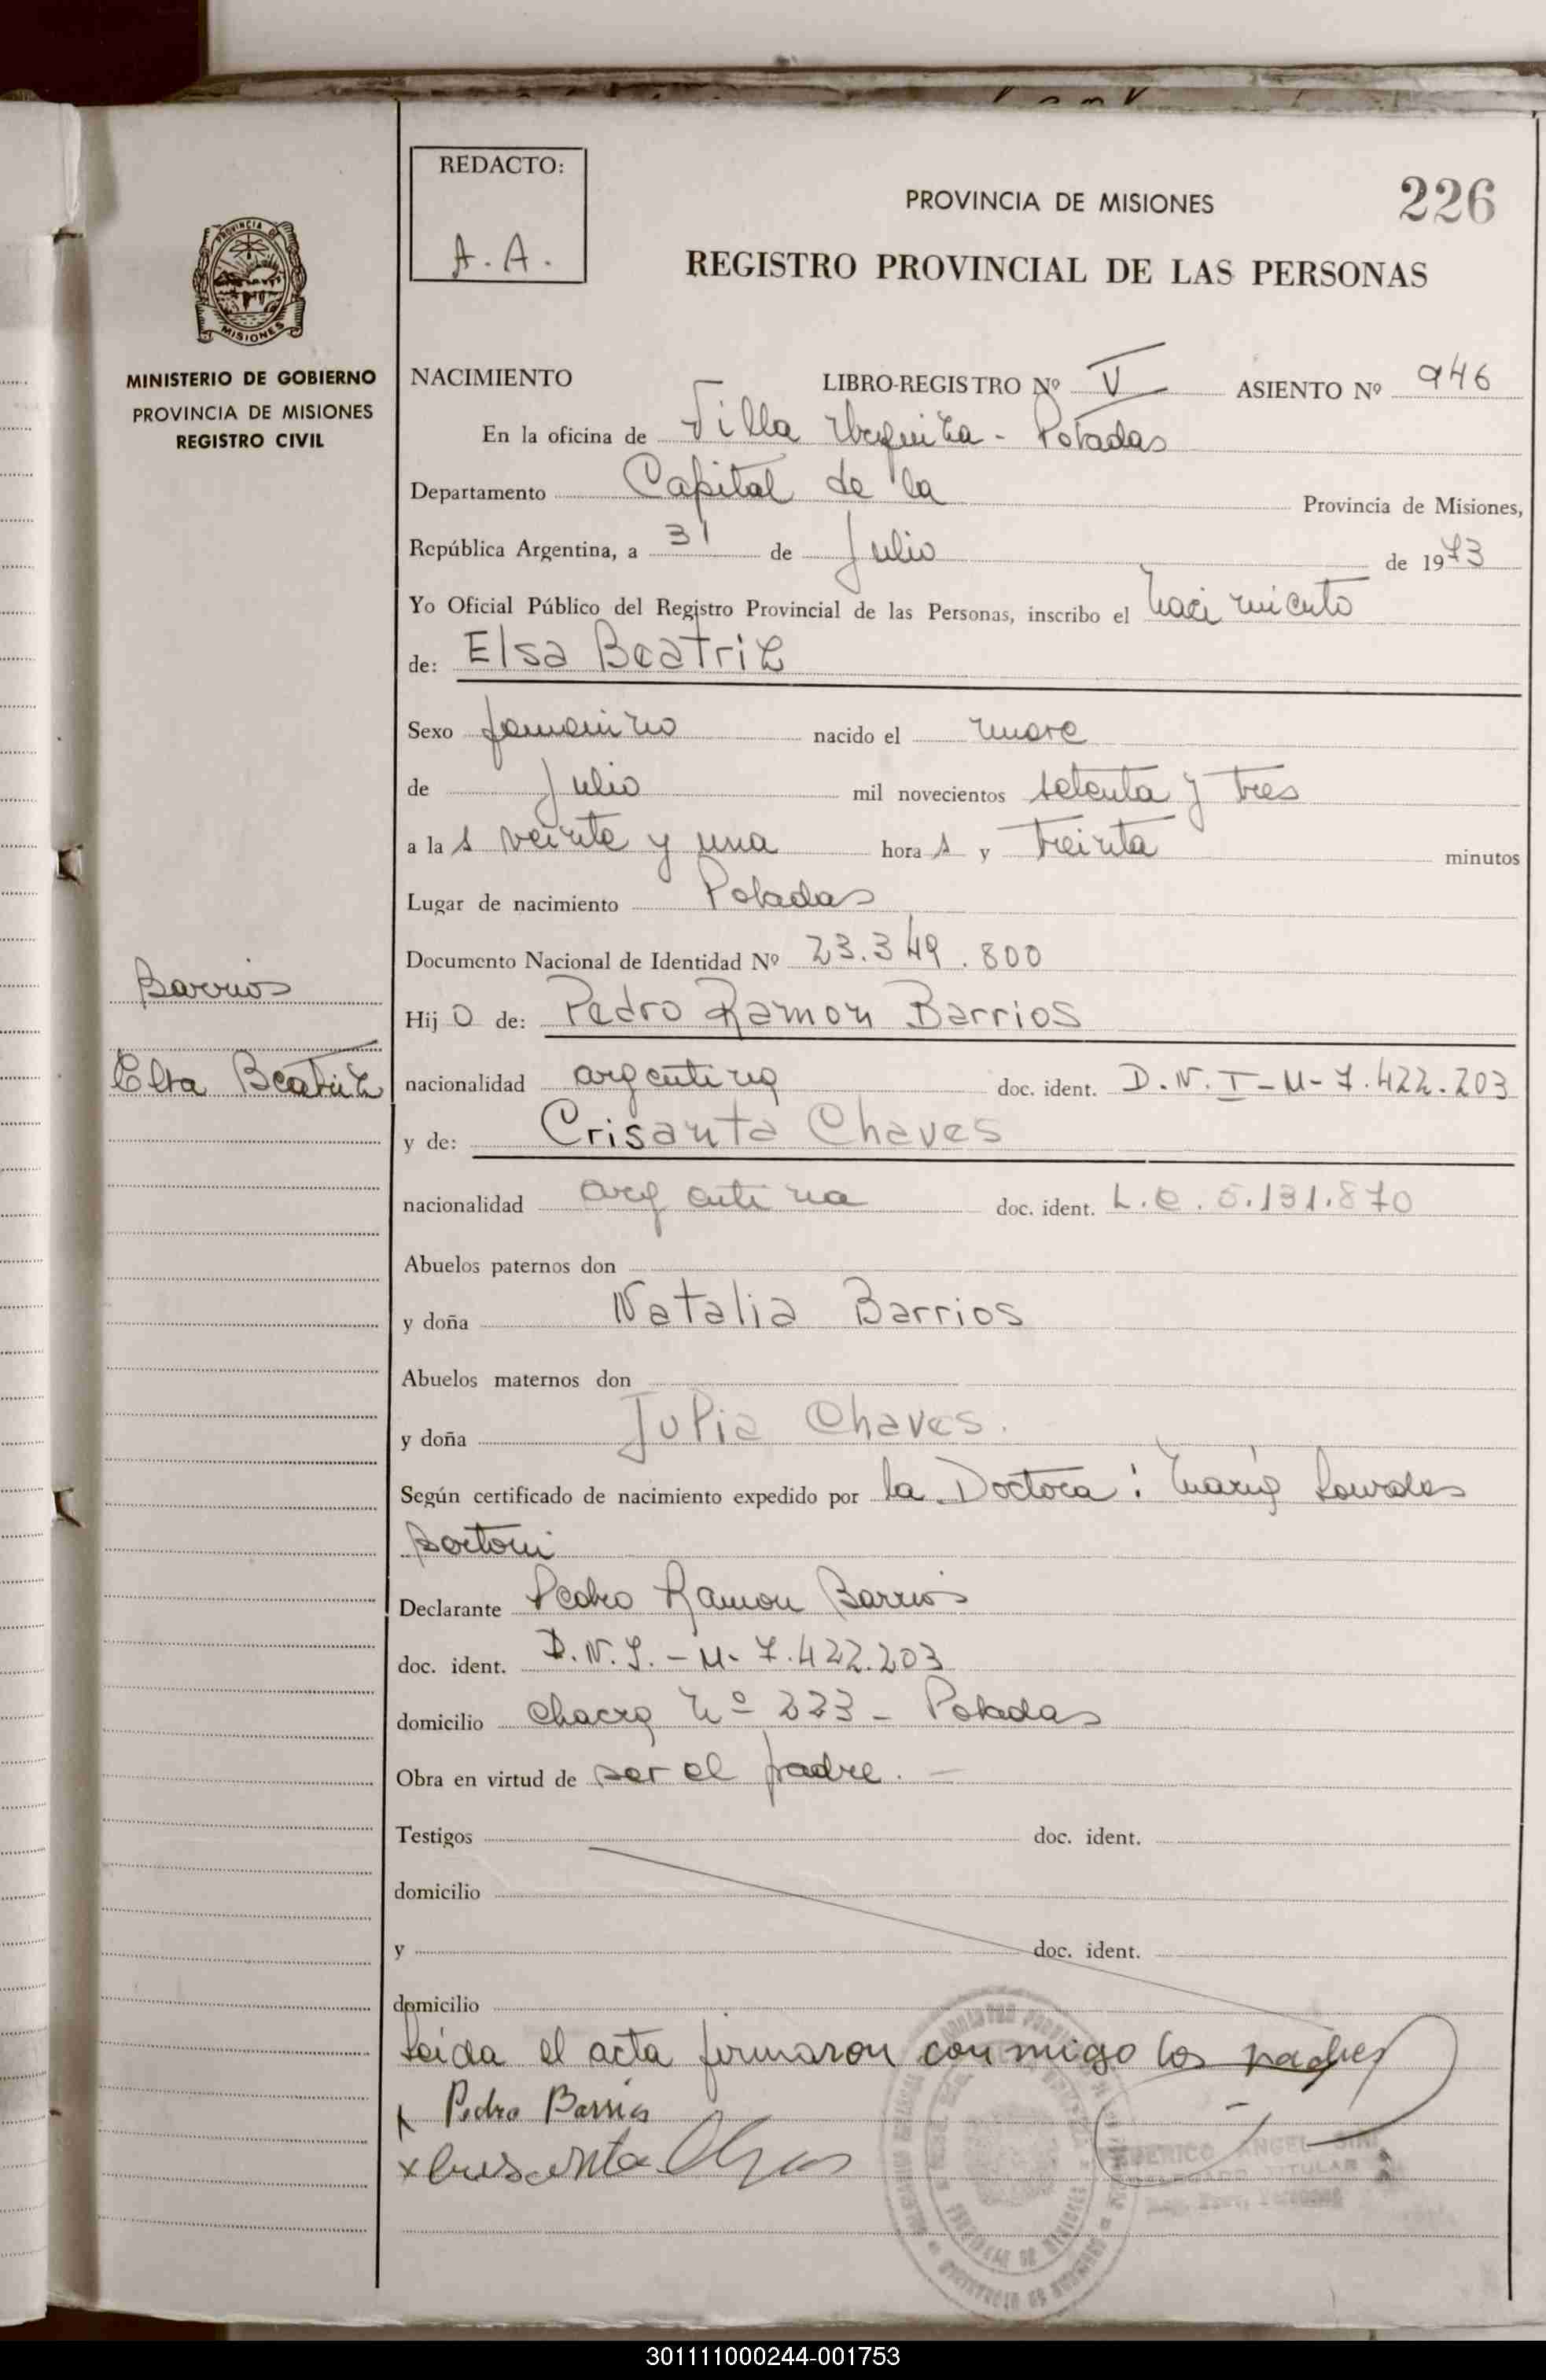 REDACTO:
A. A.
PROVINCIA DE MISIONES
226
REGISTRO PROVINCIAL DE LAS PERSONAS
PROVINCIA DE
MISIONES
MINISTERIO DE GOBIERNO
PROVINCIA DE MISIONES
REGISTRO CIVIL
NACIMIENTO LIBRO-REGISTRO Nº V ASIENTO Nº 946
En la oficina de Villa Urquiza - Posadas
Departamento Capital de la Provincia de Misiones,
República Argentina, a 31 de Julio de 1973
Yo Oficial Público del Registro Provincial de las Personas, inscribo el nacimiento
de: Elsa Beatriz
Sexo femenino nacido el nueve
de Julio mil novecientos setenta y tres
a la s veinte y una hora s y treinta minutos
Lugar de nacimiento Posadas
Documento Nacional de Identidad Nº 23.349.800
Barrios
Elsa Beatriz
Hij o de: Pedro Ramon Barrios
nacionalidad argentina doc. ident. D.N.I-M-7.422.203
y de: Crisanta Chaves
nacionalidad argentina doc. ident. L.C. 5.131.870
Abuelos paternos don
y doña Natalia Barrios
Abuelos maternos don
y doña Julia Chaves.
Según certificado de nacimiento expedido por la Doctora: María Lourdes
Bortoni
Declarante Pedro Ramon Barrios
doc. ident. D.N.I.-M-7.422.203
domicilio chacra Nº 223 - Posadas
Obra en virtud de ser el padre. -
Testigos doc. ident.
domicilio
y doc. ident.
domicilio
Leida el acta firmaron conmigo los padres
x Pedro Barrios
x Crisanta Chaves
ANGEL
TITULAR
301111000244-001753